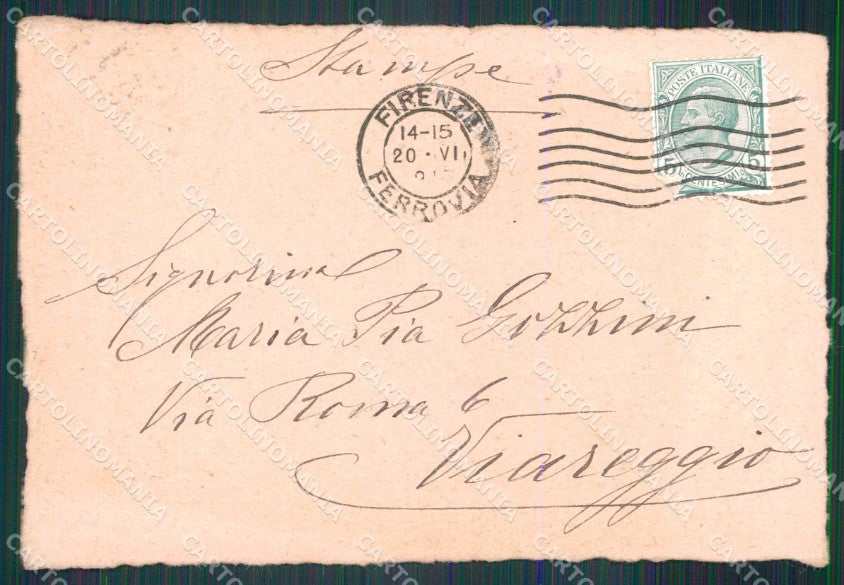 Stampe
POSTE ITALIANE
FIRENZE
14-15
20 · VI
FERROVIA
5
5
Signorina
Maria Pia Gozzini
Via Roma 6
Viareggio
CARTOLINOMANIA